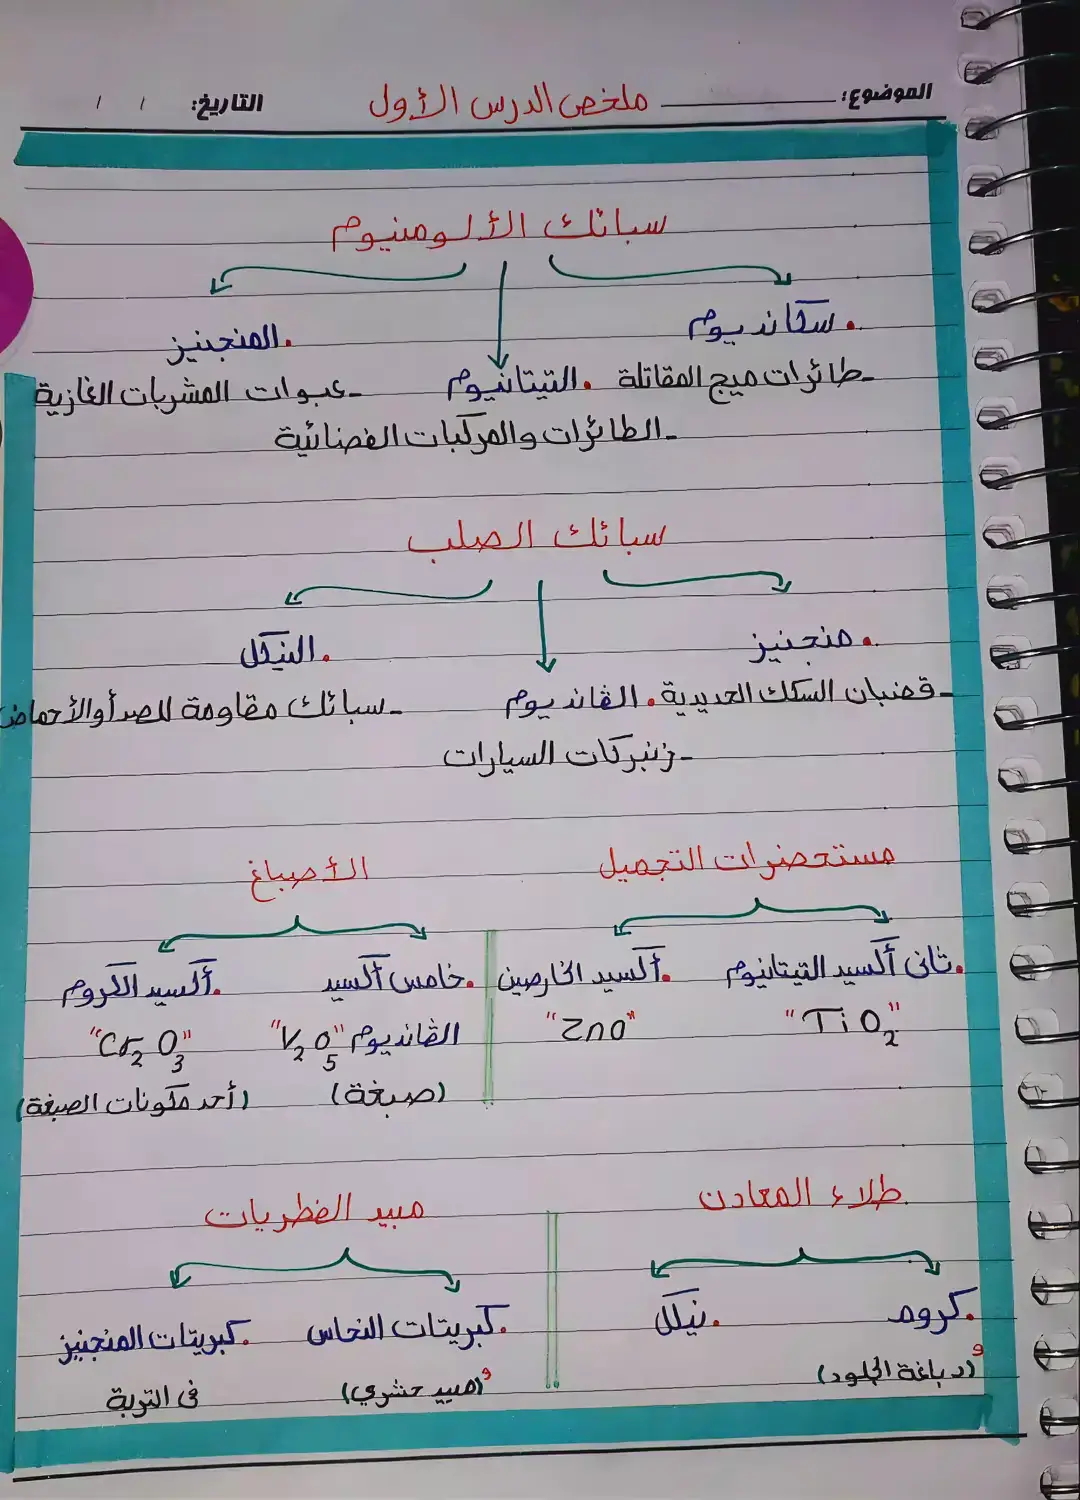 الموضوع: ملخص الدرس الأول التاريخ: / /
سبائك الألومنيوم
. سكانديوم
.المنجنيز
ـ طائرات ميج المقاتلة
. التيتانيوم
ـ عبوات المشربات الغازية
ـ الطائرات والمركبات الفضائية
سبائك الصلب
. منجنيز
. النيكل
ـ قضبان السكك الحديدية
. الڤانديوم
ـ سبائك مقاومة للصدأ والأحماض
ـ زنبركات السيارات
مستحضرات التجميل
.ثانى أكسيد التيتانيوم
"TiO2"
.أكسيد الخارصين
"ZnO"
الأصباغ
.خامس أكسيد
الڤانديوم "V2O5"
(صبغة)
.أكسيد الكروم
"Cr2O3"
(أحد مكونات الصبغة)
طلاء المعادن
.كروم
و(دباغة الجلود)
.نيكل
مبيد الفطريات
.كبريتات النحاس
و(مبيد حشري)
.كبريتات المنجنيز
فى التربة